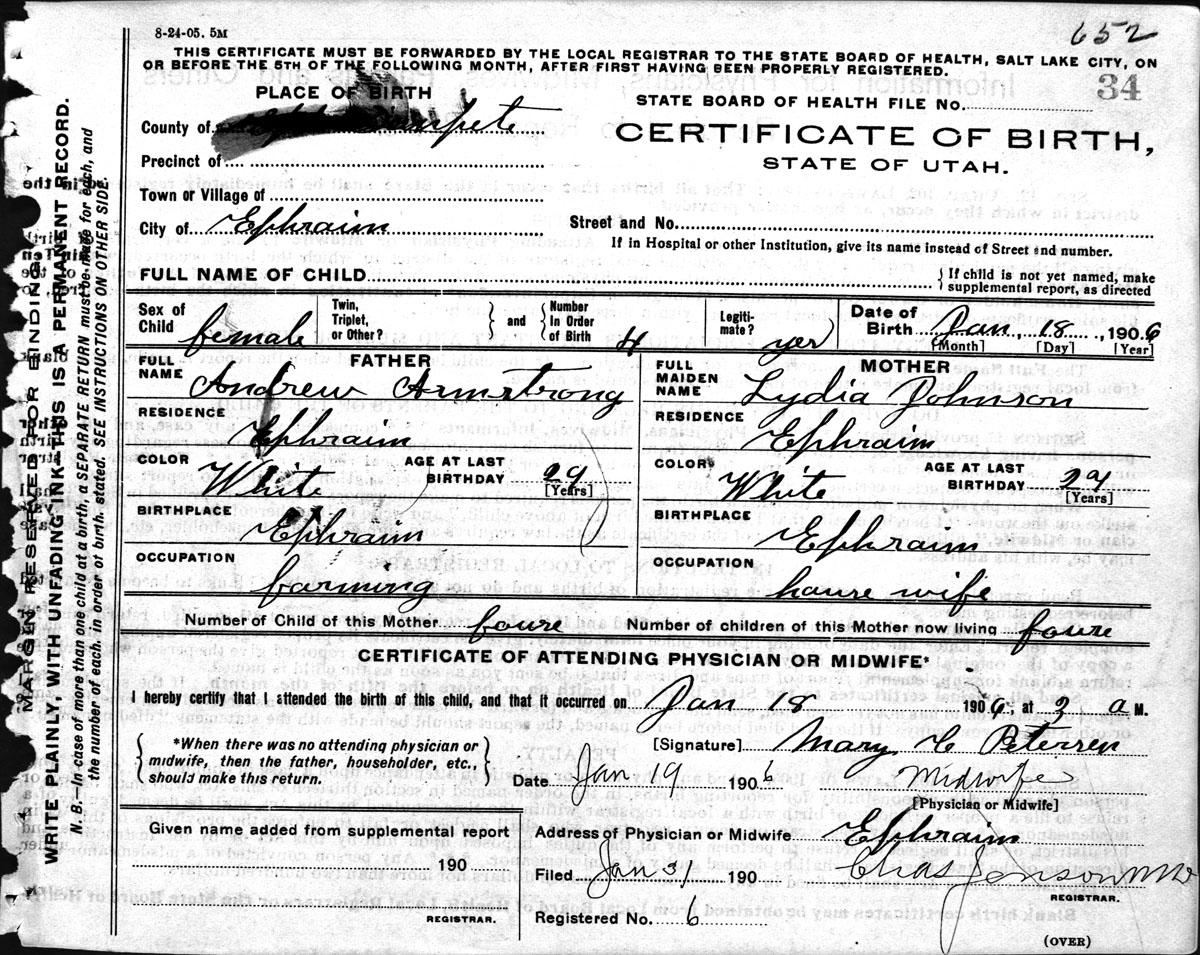 8-24-05. 5M
652
THIS CERTIFICATE MUST BE FORWARDED BY THE LOCAL REGISTRAR TO THE STATE BOARD OF HEALTH, SALT LAKE CITY, ON
OR BEFORE THE 5TH OF THE FOLLOWING MONTH, AFTER FIRST HAVING BEEN PROPERLY REGISTERED.
PLACE OF BIRTH
STATE BOARD OF HEALTH FILE No. 34
County of
CERTIFICATE OF BIRTH,
STATE OF UTAH.
Precinct of
Town or Village of
City of Ephraim
Street and No.
If in Hospital or other Institution, give its name instead of Street and number.
FULL NAME OF CHILD
{ If child is not yet named, make supplemental report, as directed
Sex of Child female
Twin, Triplet, or Other? } and { Number In Order of Birth 4
Legitimate? yes
Date of Birth Jan, 18, 1906
[Month] [Day] [Year]
FATHER
FULL NAME Andrew Armstrong
RESIDENCE Ephraim
COLOR White AGE AT LAST BIRTHDAY 29 [Years]
BIRTHPLACE Ephraim
OCCUPATION farming
MOTHER
FULL MAIDEN NAME Lydia Johnson
RESIDENCE Ephraim
COLOR White AGE AT LAST BIRTHDAY 29 [Years]
BIRTHPLACE Ephraim
OCCUPATION house wife
Number of Child of this Mother foure Number of children of this Mother now living foure
CERTIFICATE OF ATTENDING PHYSICIAN OR MIDWIFE*
I hereby certify that I attended the birth of this child, and that it occurred on Jan 18 1906, at 3 a M.
{ *When there was no attending physician or midwife, then the father, householder, etc., should make this return. }
[Signature] Mary C Petersen
Date Jan 19 1906 Midwife
[Physician or Midwife]
Given name added from supplemental report
190
REGISTRAR.
Address of Physician or Midwife Ephraim
Filed Jan 31 190 Chas Jenson
REGISTRAR.
Registered No. 6
(OVER)
MARGIN RESERVED FOR BINDING.
WRITE PLAINLY, WITH UNFADING INK—THIS IS A PERMANENT RECORD.
N. B.—In case of more than one child at a birth, a SEPARATE RETURN must be made for each, and
the number of each, in order of birth, stated. SEE INSTRUCTIONS ON OTHER SIDE.